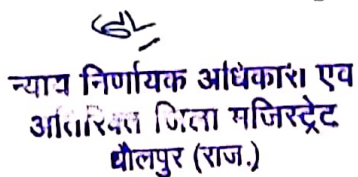 न्याय निर्णायक अधिकारी एव
अतिरिक्त जिला मजिस्ट्रेट
धौलपुर (राज.)